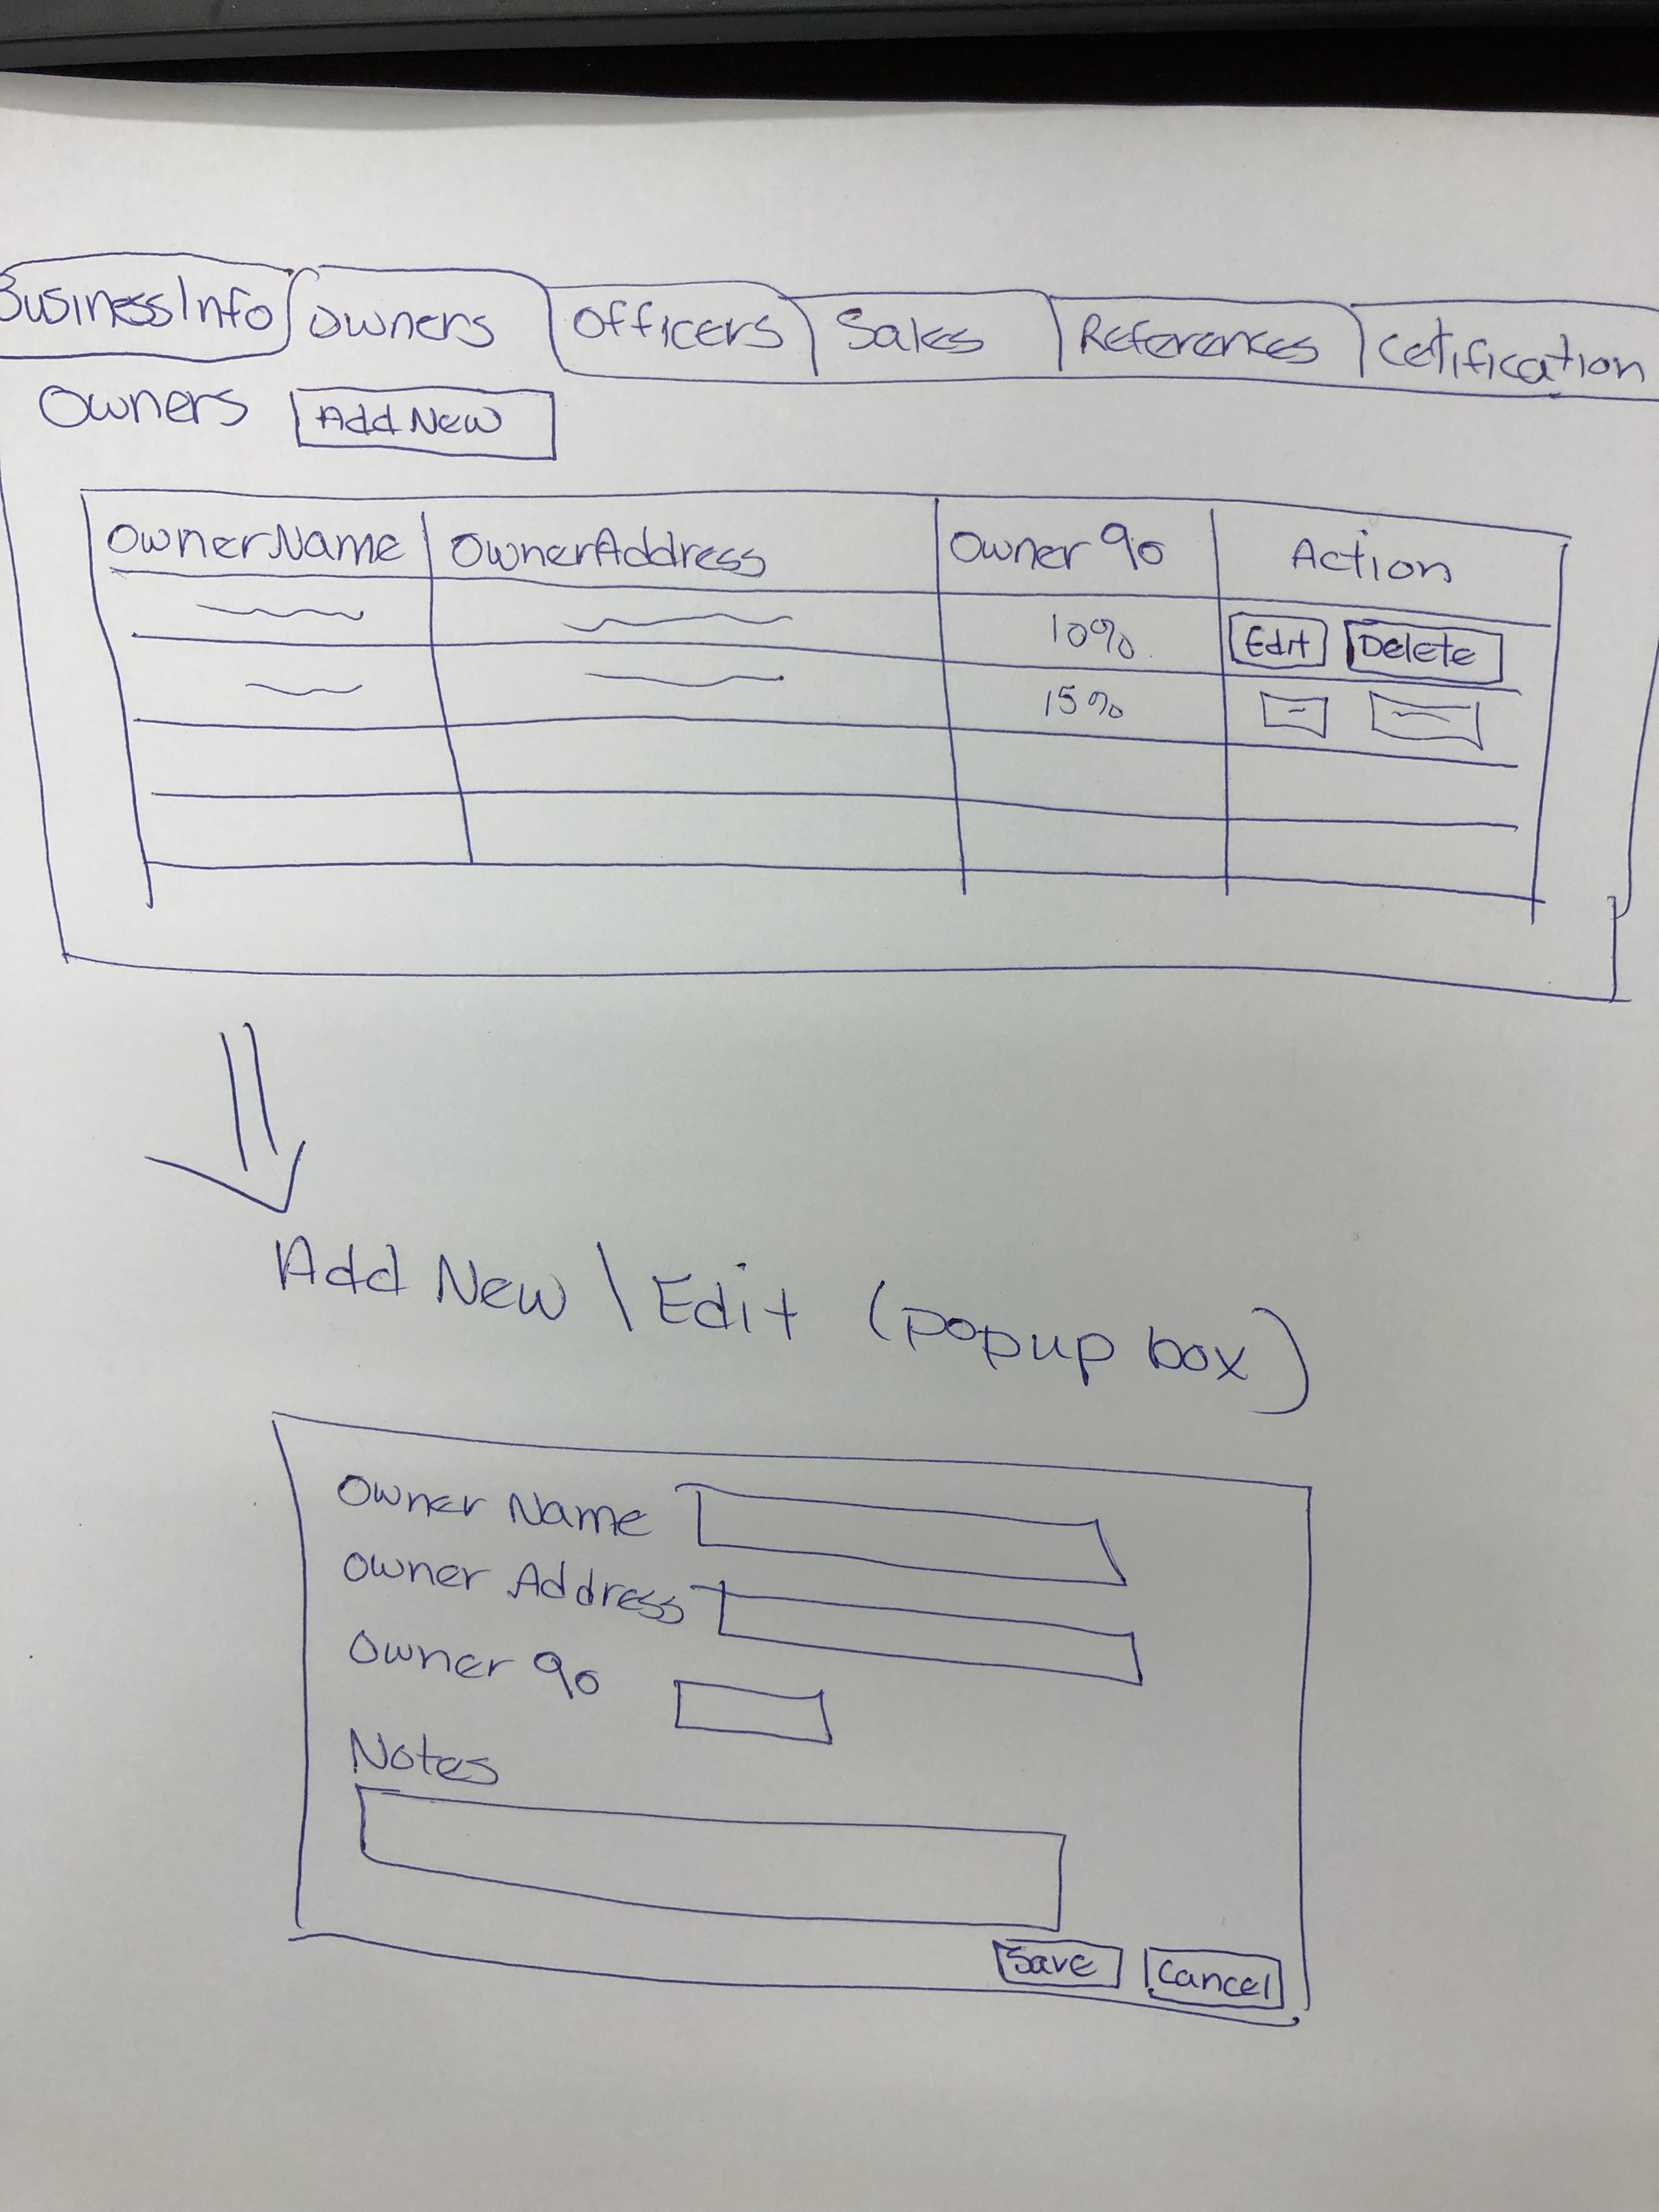 BusinessInfo Owners Officers Sales References Cetification
Owners Add New
OwnerName OwnerAddress Owner % Action
10% Edit Delete
15%
Add New \ Edit (popup box)
Owner Name
Owner Address
Owner %
Notes
Save Cancel